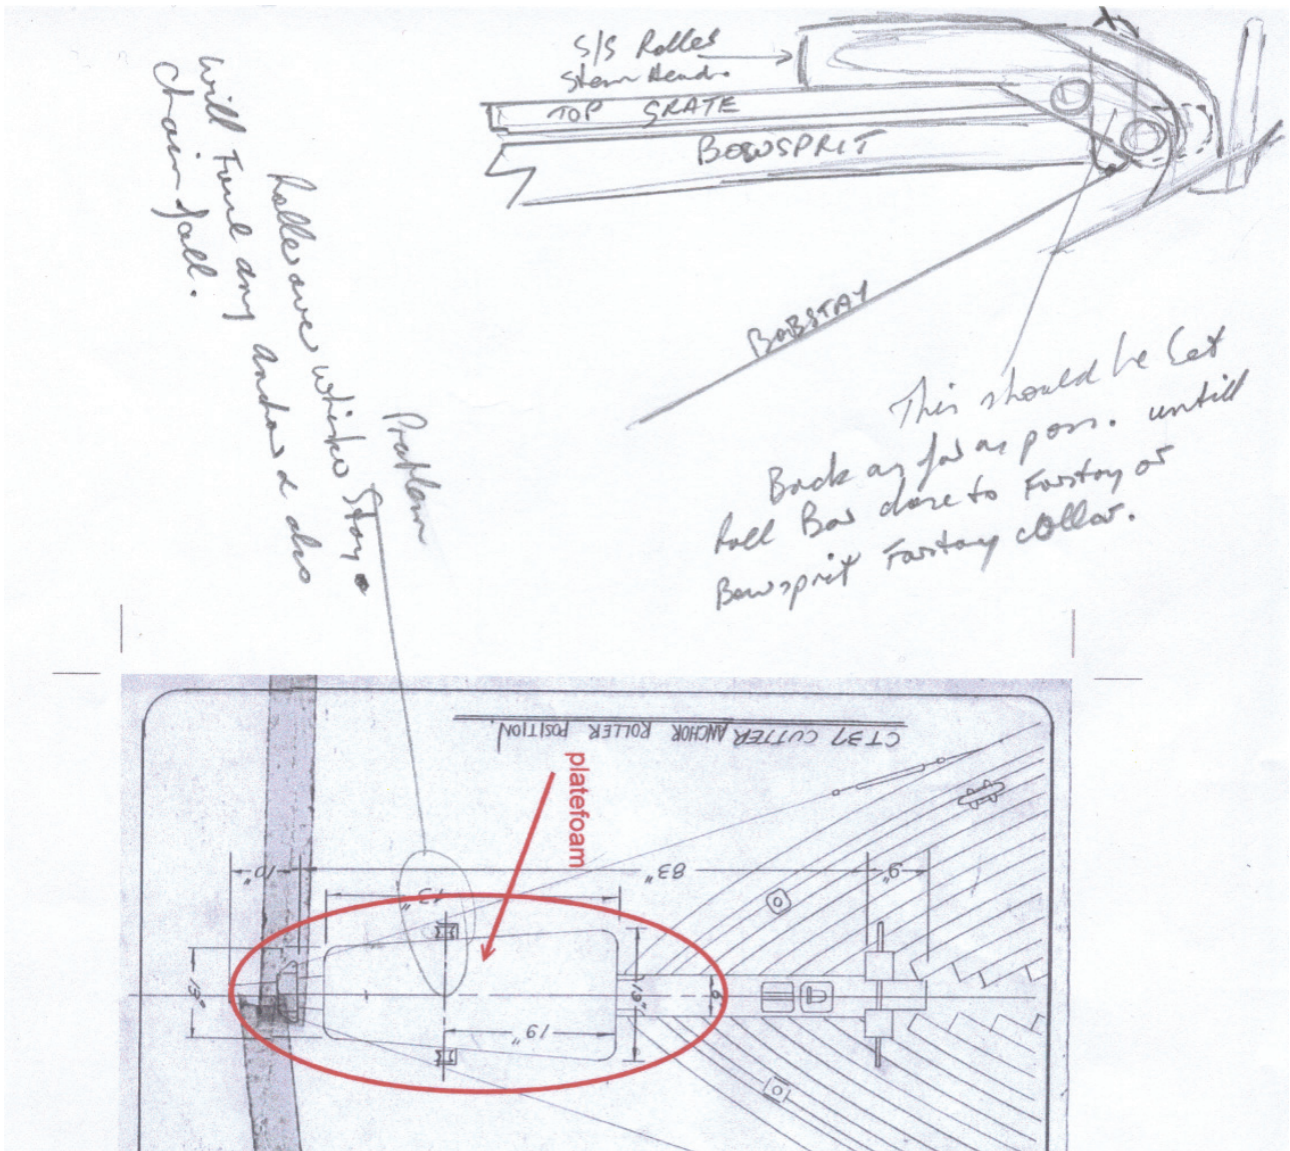 S/S Roller
Stem Head.
TOP GRATE
BOWSPRIT
BOBSTAY
This should be Set
Back as far as poss. untill
Roll Bar close to Forstay or
Bowsprit Forstay collar.
Problem
Roller over whisker Stay.
Will Foul any Anchor & also
Chain fall.
CT37 CUTTER ANCHOR ROLLER POSITION
platefoam
10"
83"
9"
19"